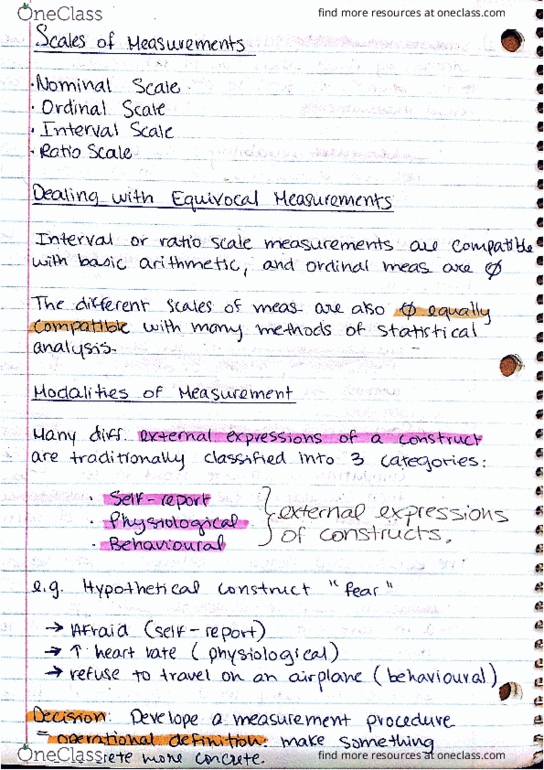 OneClass
find more resources at oneclass.com
Scales of Measurements
· Nominal Scale
· Ordinal Scale
· Interval Scale
· Ratio Scale
Dealing with Equivocal Measurements
Interval or ratio scale measurements are compatible
with basic arithmetic, and ordinal meas are ∅
The different scales of meas. are also ∅ equally
compatible with many methods of statistical
analysis.
Modalities of Measurement
Many diff. external expressions of a construct
are traditionally classified into 3 categories:
· Self-report
· Physiological
· Behavioural
} external expressions
of constructs.
e.g. Hypothetical construct "fear"
→ Afraid (self-report)
→ ↑ heart rate (physiological)
→ refuse to travel on an airplane (behavioural)
Decision: Develope a measurement procedure
= operational definition: make something
more concrete.
OneClass
find more resources at oneclass.com